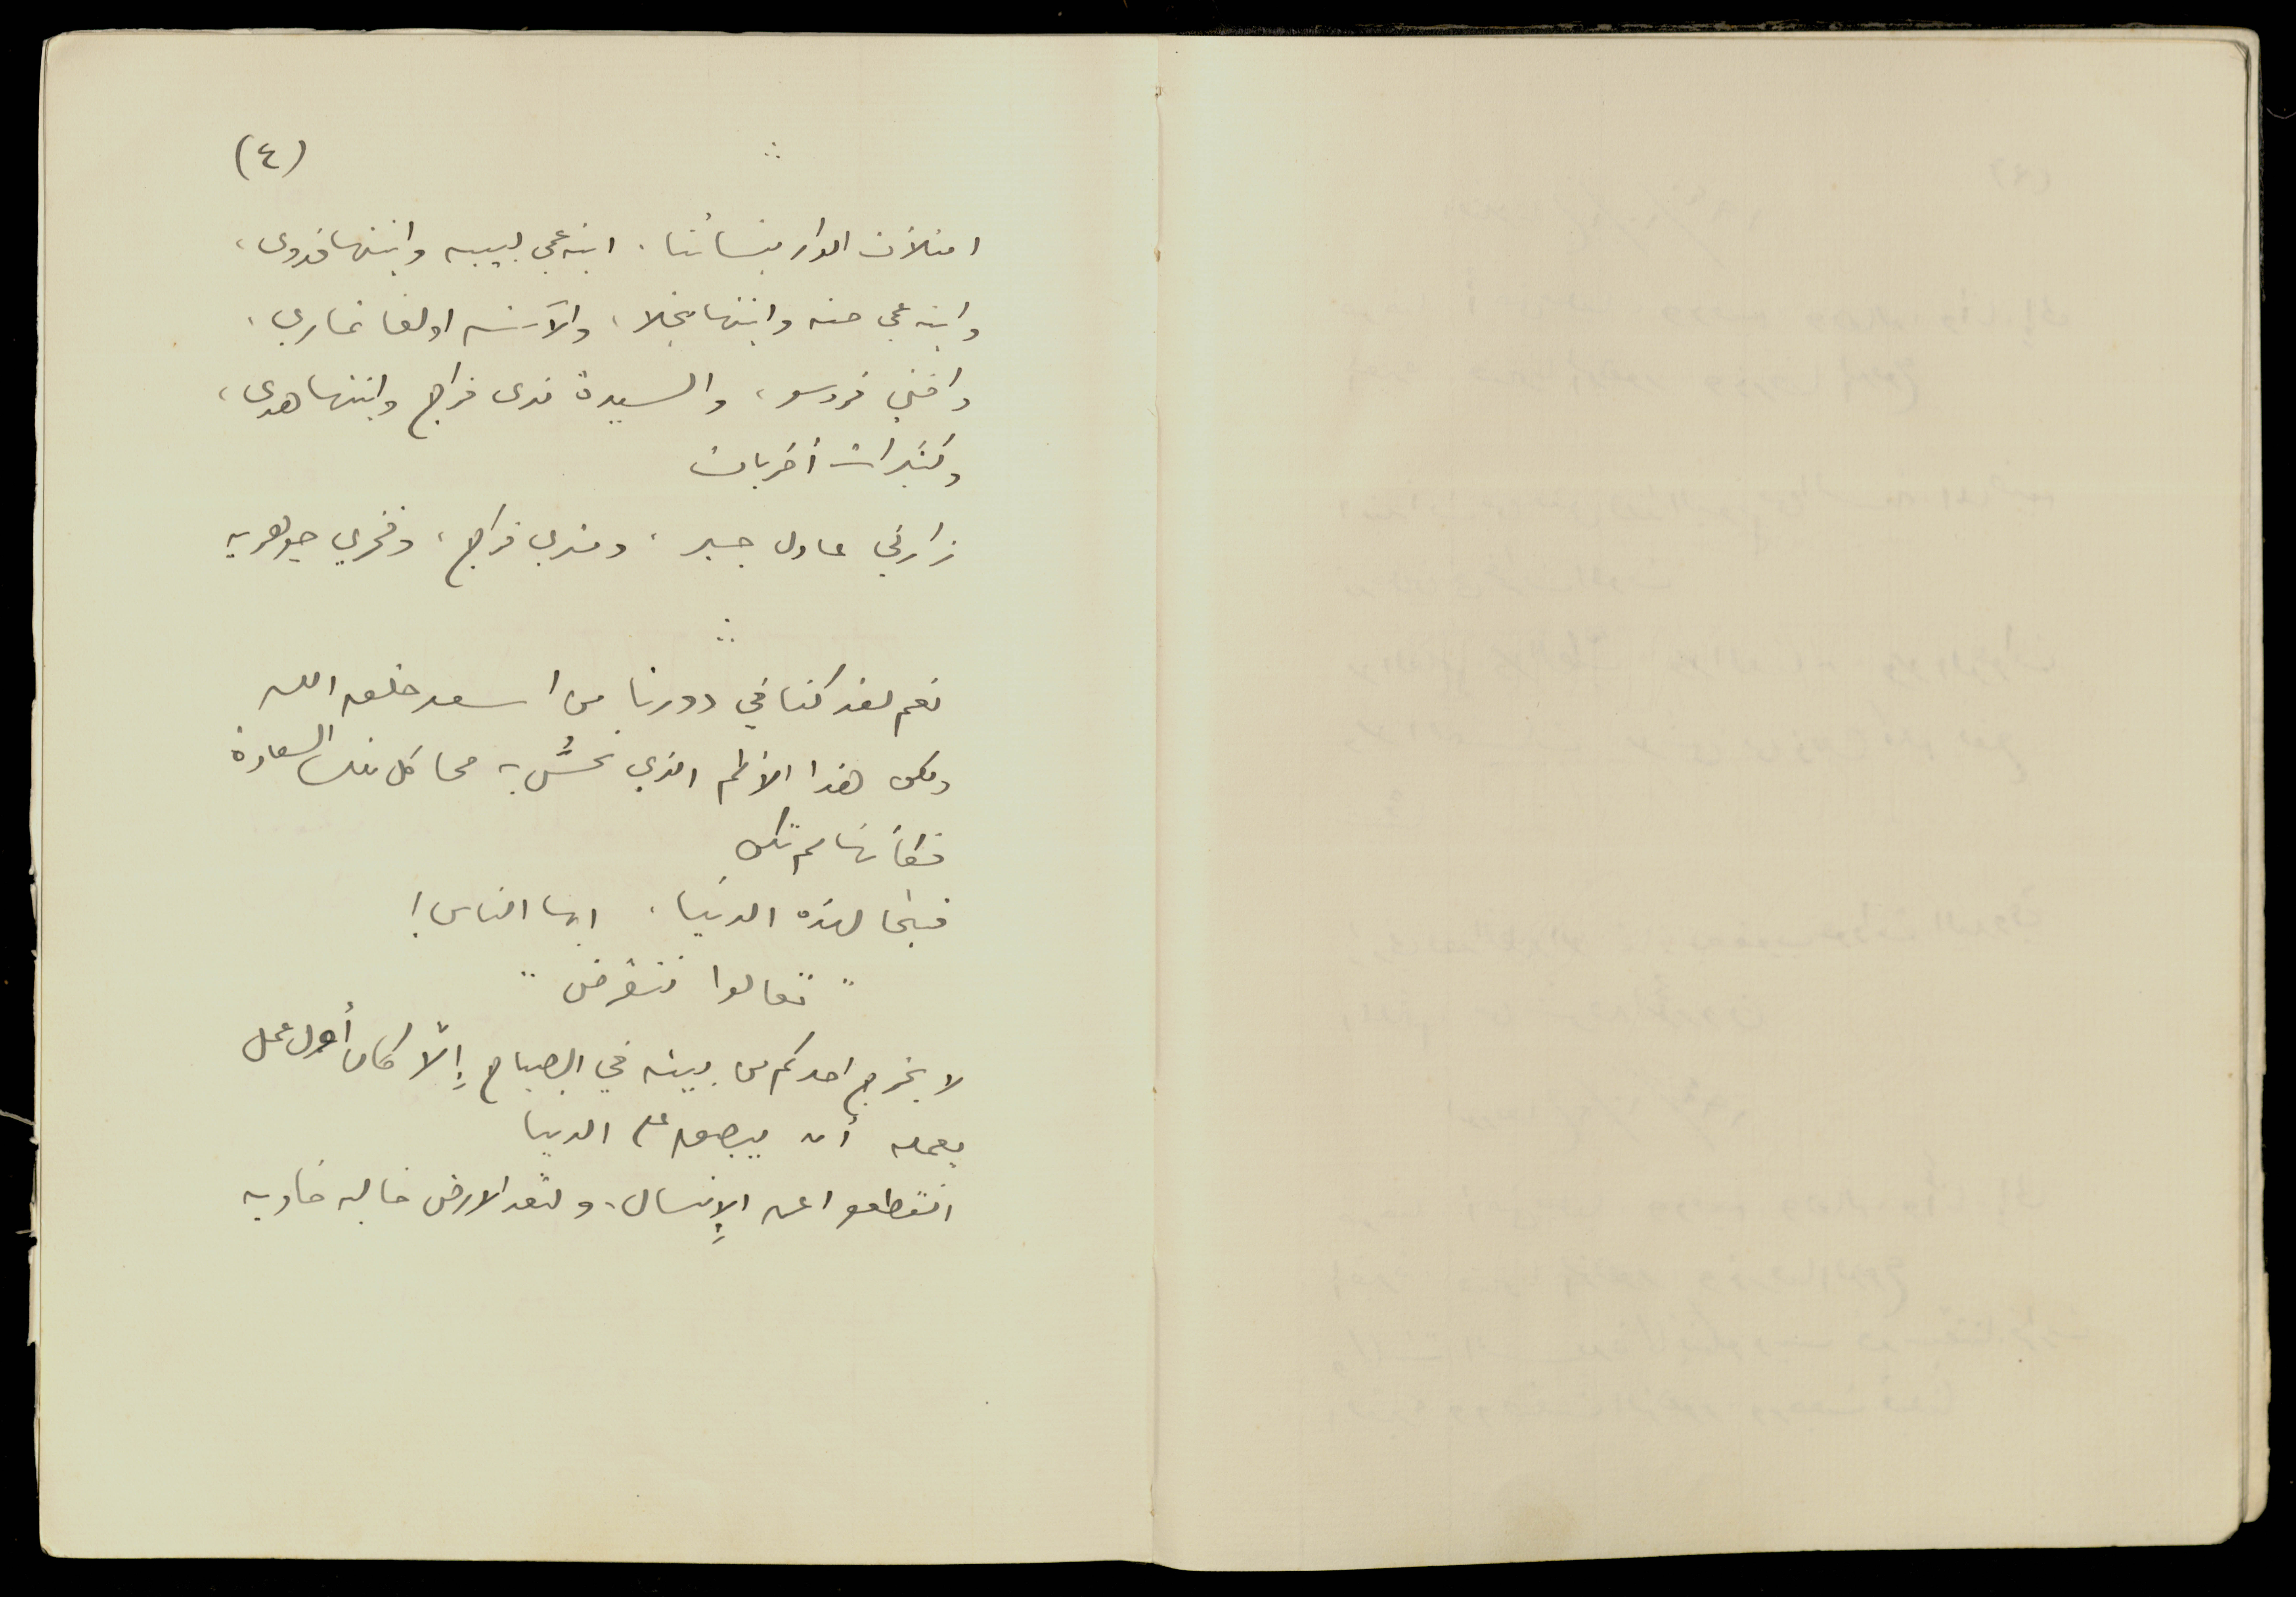 (٤)
امتلأت الدار بنسائنا. ابنة عمي لبيبه وابنتها فدوى،
وابنة عمي حنه وابنتها نجلا، والآنسه اولغا نمازي،
واختي فردسو، والسيدة ندى فراج وابنتها هدى،
وكثيرات أخريات
زارني عادل جبر، ومنري فراج، وفخري جوهريه
نعم لقد كنا في دورنا من اسعد خلق الله
ولكن هذا الألم الذي نحسُّ به محا كل تلك السعادة
فكأنها لم تكن
فبئسا لهذه الدنيا. ايها الناس!
" تعالوا ننقرض "
لا يخرج احدكم من بيته في الصباح إلّا كان أول عمل
يعمله أن يبصق على الدنيا
انقطعوا عن الإنسال، ولتعد الارض خاليه خاويه